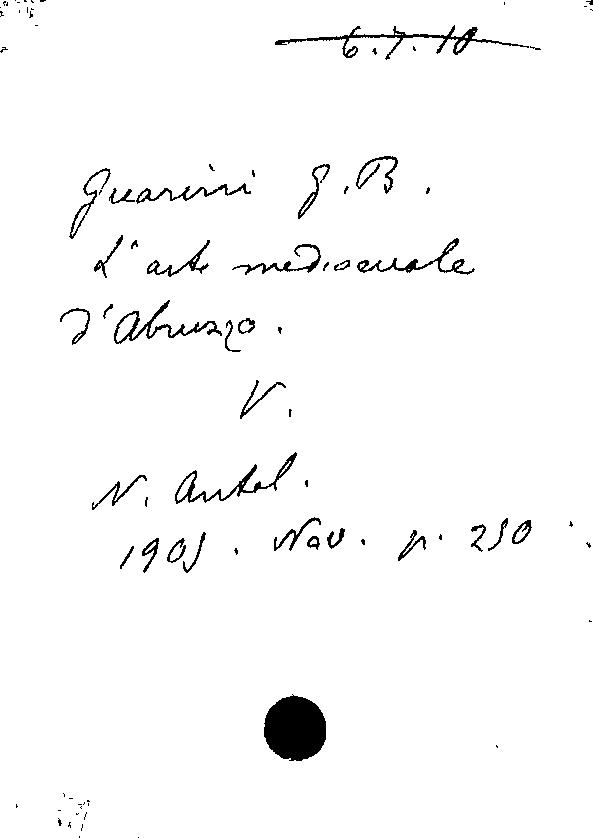 6.7.10
Guarini G. B.
L'arte medioevale
d'Abruzzo.
V.
N. Antol.
1905. Nov. p. 250